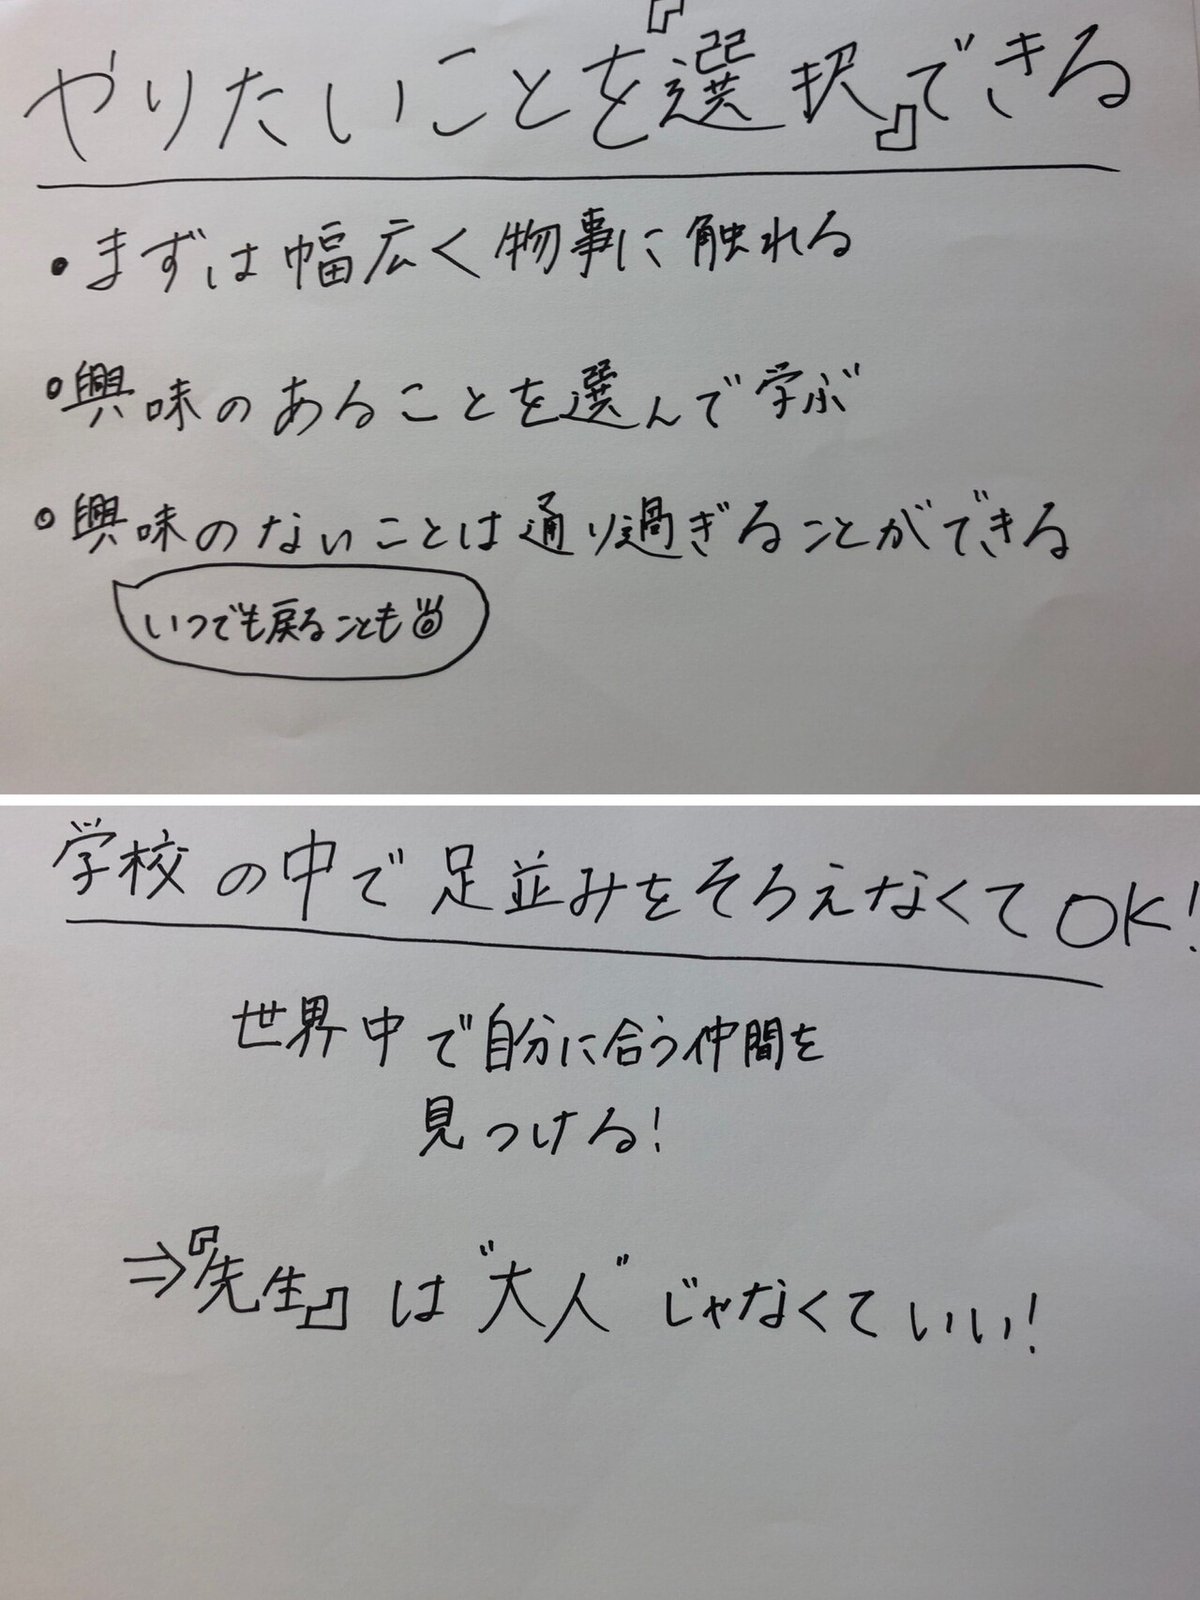 やりたいことを『選択』できる
・まずは幅広く物事に触れる
・興味のあることを選んで学ぶ
・興味のないことは通り過ぎることができる
いつでも戻ることも
学校の中で足並みをそろえなくてOK!
世界中で自分に合う仲間を
見つける!
⇒『先生』は"大人"じゃなくていい!